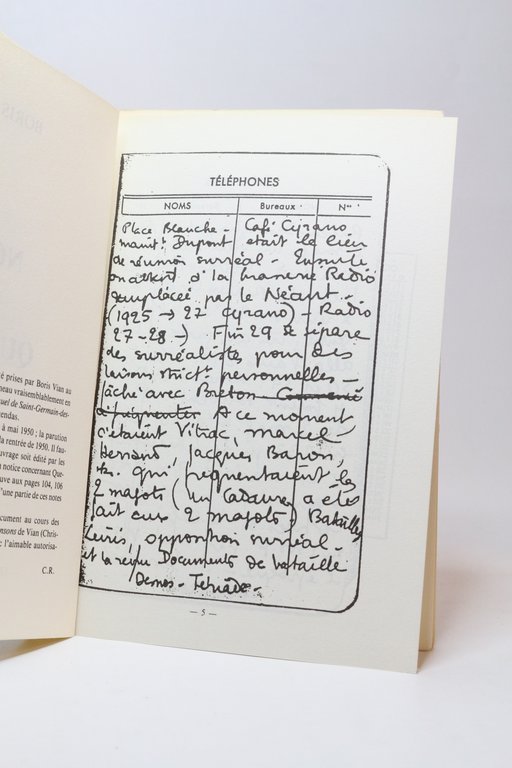 BORIS
é prises par Boris Vian au
neau vraisemblablement en
uel de Saint-Germain-des-
endas.
à mai 1950 ; la parution
la rentrée de 1950. Il fau-
uvrage soit édité par les
n notice concernant Que-
uve aux pages 104, 106
'une partie de ces notes
ocument au cours des
nsons de Vian (Chris-
l'aimable autorisa-
C.R.
TÉLÉPHONES
NOMS Bureaux Nos
Place Blanche - Café Cyrano
maint. Dupont était le lieu
de réunion surréal - Ensuite
on à la brasserie Radio
remplacée par le Néant -
(1925 → 27 Cyrano) - Radio
27-28 -) Fin 29 Q se sépare
des surréalistes pour des
raisons strict. personnelles -
fâché avec Breton
à fréquenter A ce moment
c'étaient Vitrac, Marcel
Jacques Baron,
etc. qui fréquentaient les
2 magots (un Cadavre) a été
fait aux 2 magots) Bataille,
Leiris, opposition surréal -
et la revue Documents de bataille
Desnos - Tériade -
— 5 —